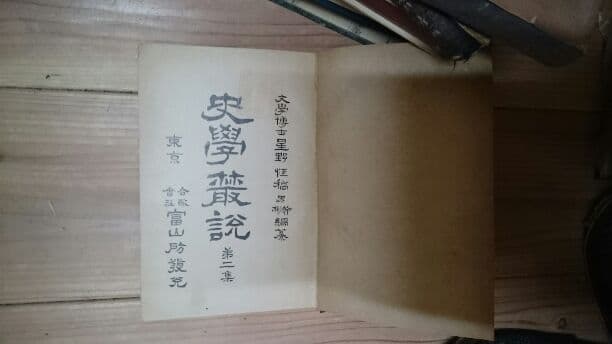 文學博士星野恒稿 男彬編纂
史學叢說 第二集
東京 合資會社 富山房發兌